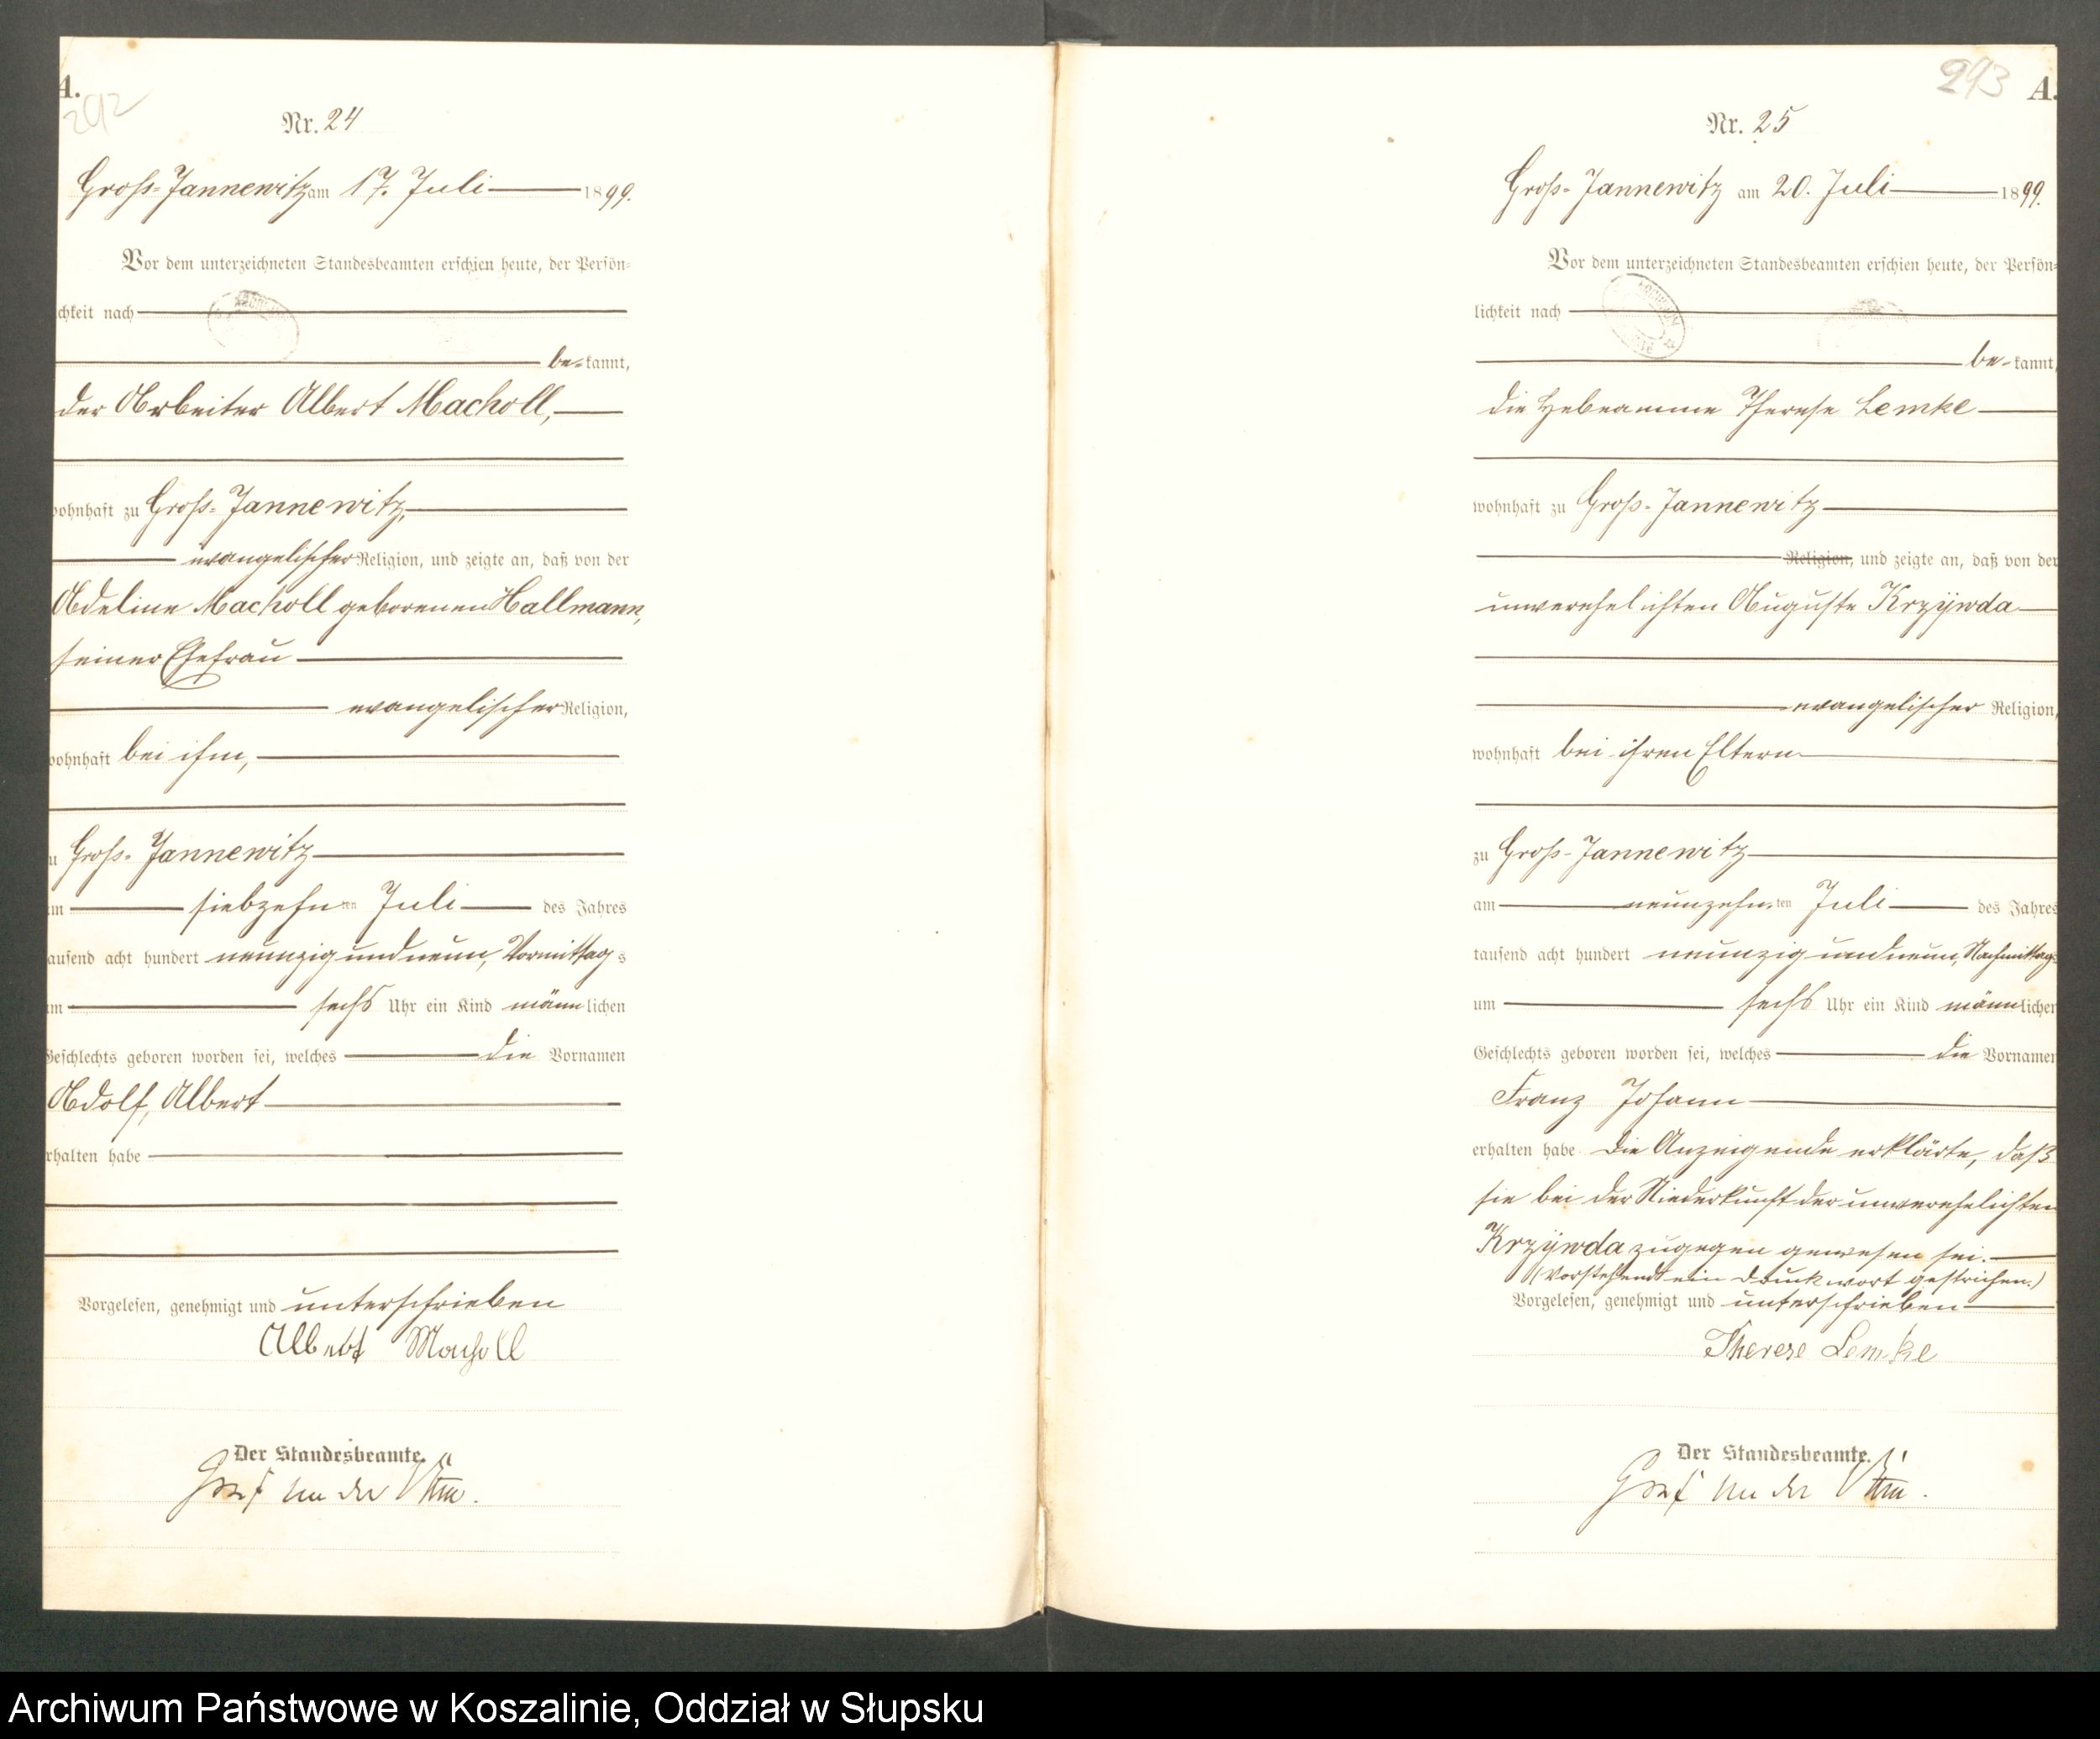 A.
292
Nr. 24
Groß-Jannewitz am 17. Juli 1899.
Vor dem unterzeichneten Standesbeamten erschien heute, der Persön-
chkeit nach
be-kannt,
der Arbeiter Albert Macholl,
wohnhaft zu Groß-Jannewitz,
evangelischer Religion, und zeigte an, daß von der
Adeline Macholl geborenen Hallmann,
seiner Ehefrau
evangelischer Religion,
wohnhaft bei ihm,
u Groß-Jannewitz
am siebzehnten Juli des Jahres
tausend acht hundert neunzig und neun, Vormittags
um sechs Uhr ein Kind männlichen
Geschlechts geboren worden sei, welches die Vornamen
Adolf, Albert
erhalten habe
Vorgelesen, genehmigt und unterschrieben
Albert Macholl
Der Standesbeamte.
Graf von der
293
A.
Nr. 25
Groß-Jannewitz am 20. Juli 1899.
Vor dem unterzeichneten Standesbeamten erschien heute, der Persön-
lichkeit nach
be-kannt,
die Hebeamme Therese Lemke
wohnhaft zu Groß-Jannewitz
Religion, und zeigte an, daß von der
unverehelichten Auguste Krzÿwda
evangelischer Religion,
wohnhaft bei ihren Eltern
zu Groß-Jannewitz
am neunzehnten Juli des Jahres
tausend acht hundert neunzig und neun, Nachmittags
um sechs Uhr ein Kind männlichen
Geschlechts geboren worden sei, welches die Vornamen
Franz Johann
erhalten habe. Die Anzeigende erklärte, daß
sie bei der Niederkunft der unverehelichten
Krzÿwda zugegen gewesen sei.
(Vorstehend ein Druckwort gestrichen.)
Vorgelesen, genehmigt und unterschrieben
Therese Lemke
Der Standesbeamte.
Graf von der
Archiwum Państwowe w Koszalinie, Oddział w Słupsku